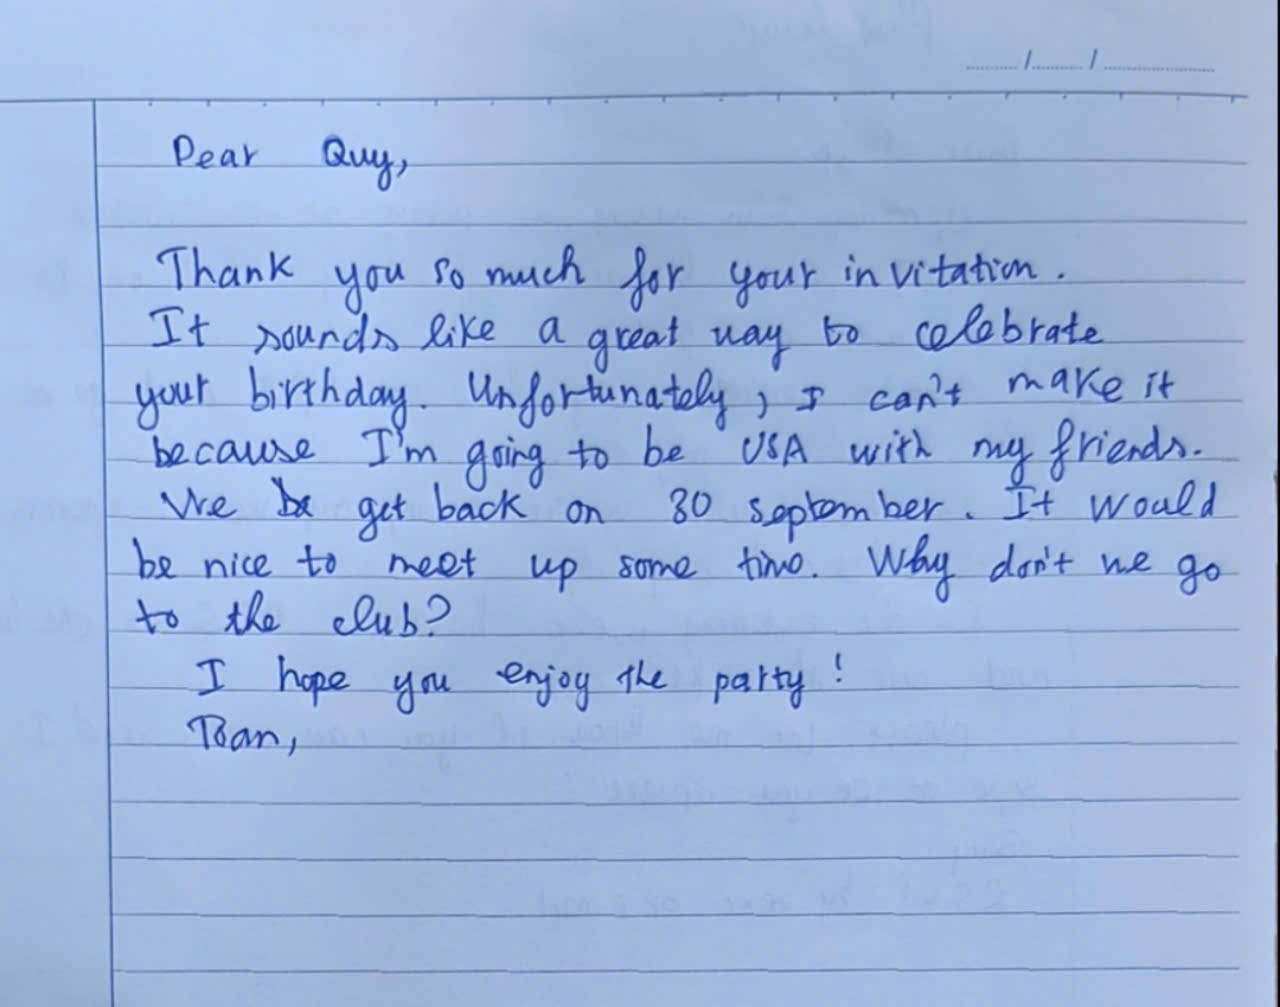 Dear Quy,
Thank you so much for your invitation.
It sounds like a great way to celebrate
your birthday. Unfortunately, I can't make it
because I'm going to be USA with my friends.
We be get back on 30 september. It would
be nice to meet up some time. Why don't we go
to the club?
I hope you enjoy the party!
Toan,